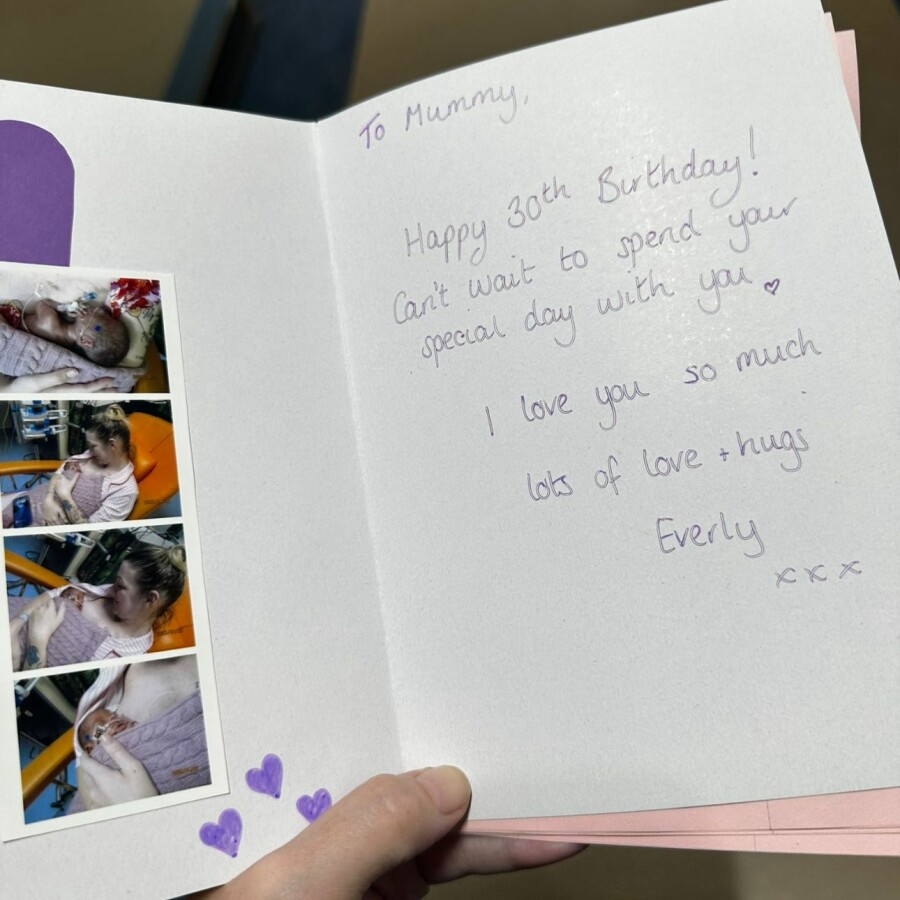 To Mummy,
Happy 30th Birthday!
Can't wait to spend your
special day with you ♡
I love you so much
lots of love + hugs
Everly
x x x